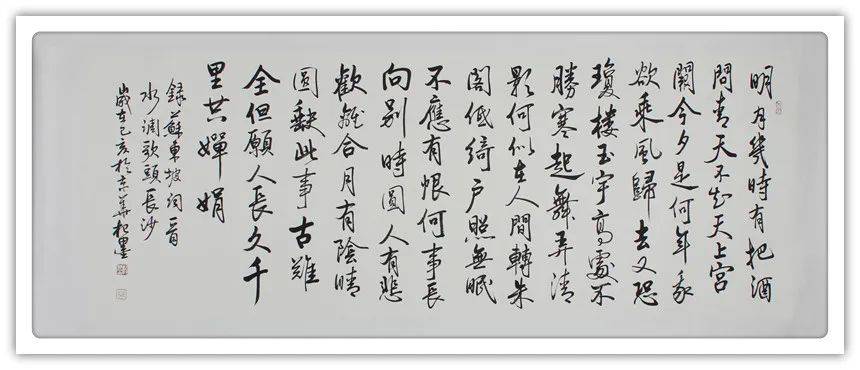 明月幾時有把酒
問青天不知天上宮
闕今夕是何年我
欲乘風歸去又恐
瓊楼玉宇高處不
勝寒起舞弄清
影何似在人間轉朱
閣低綺戶照無眠
不應有恨何事長
向别時圓人有悲
歡離合月有陰晴
圓缺此事古難
全但願人長久千
里共嬋娟
録蘇東坡詞一首
水調歌頭長沙
歲在己亥於京華松墨